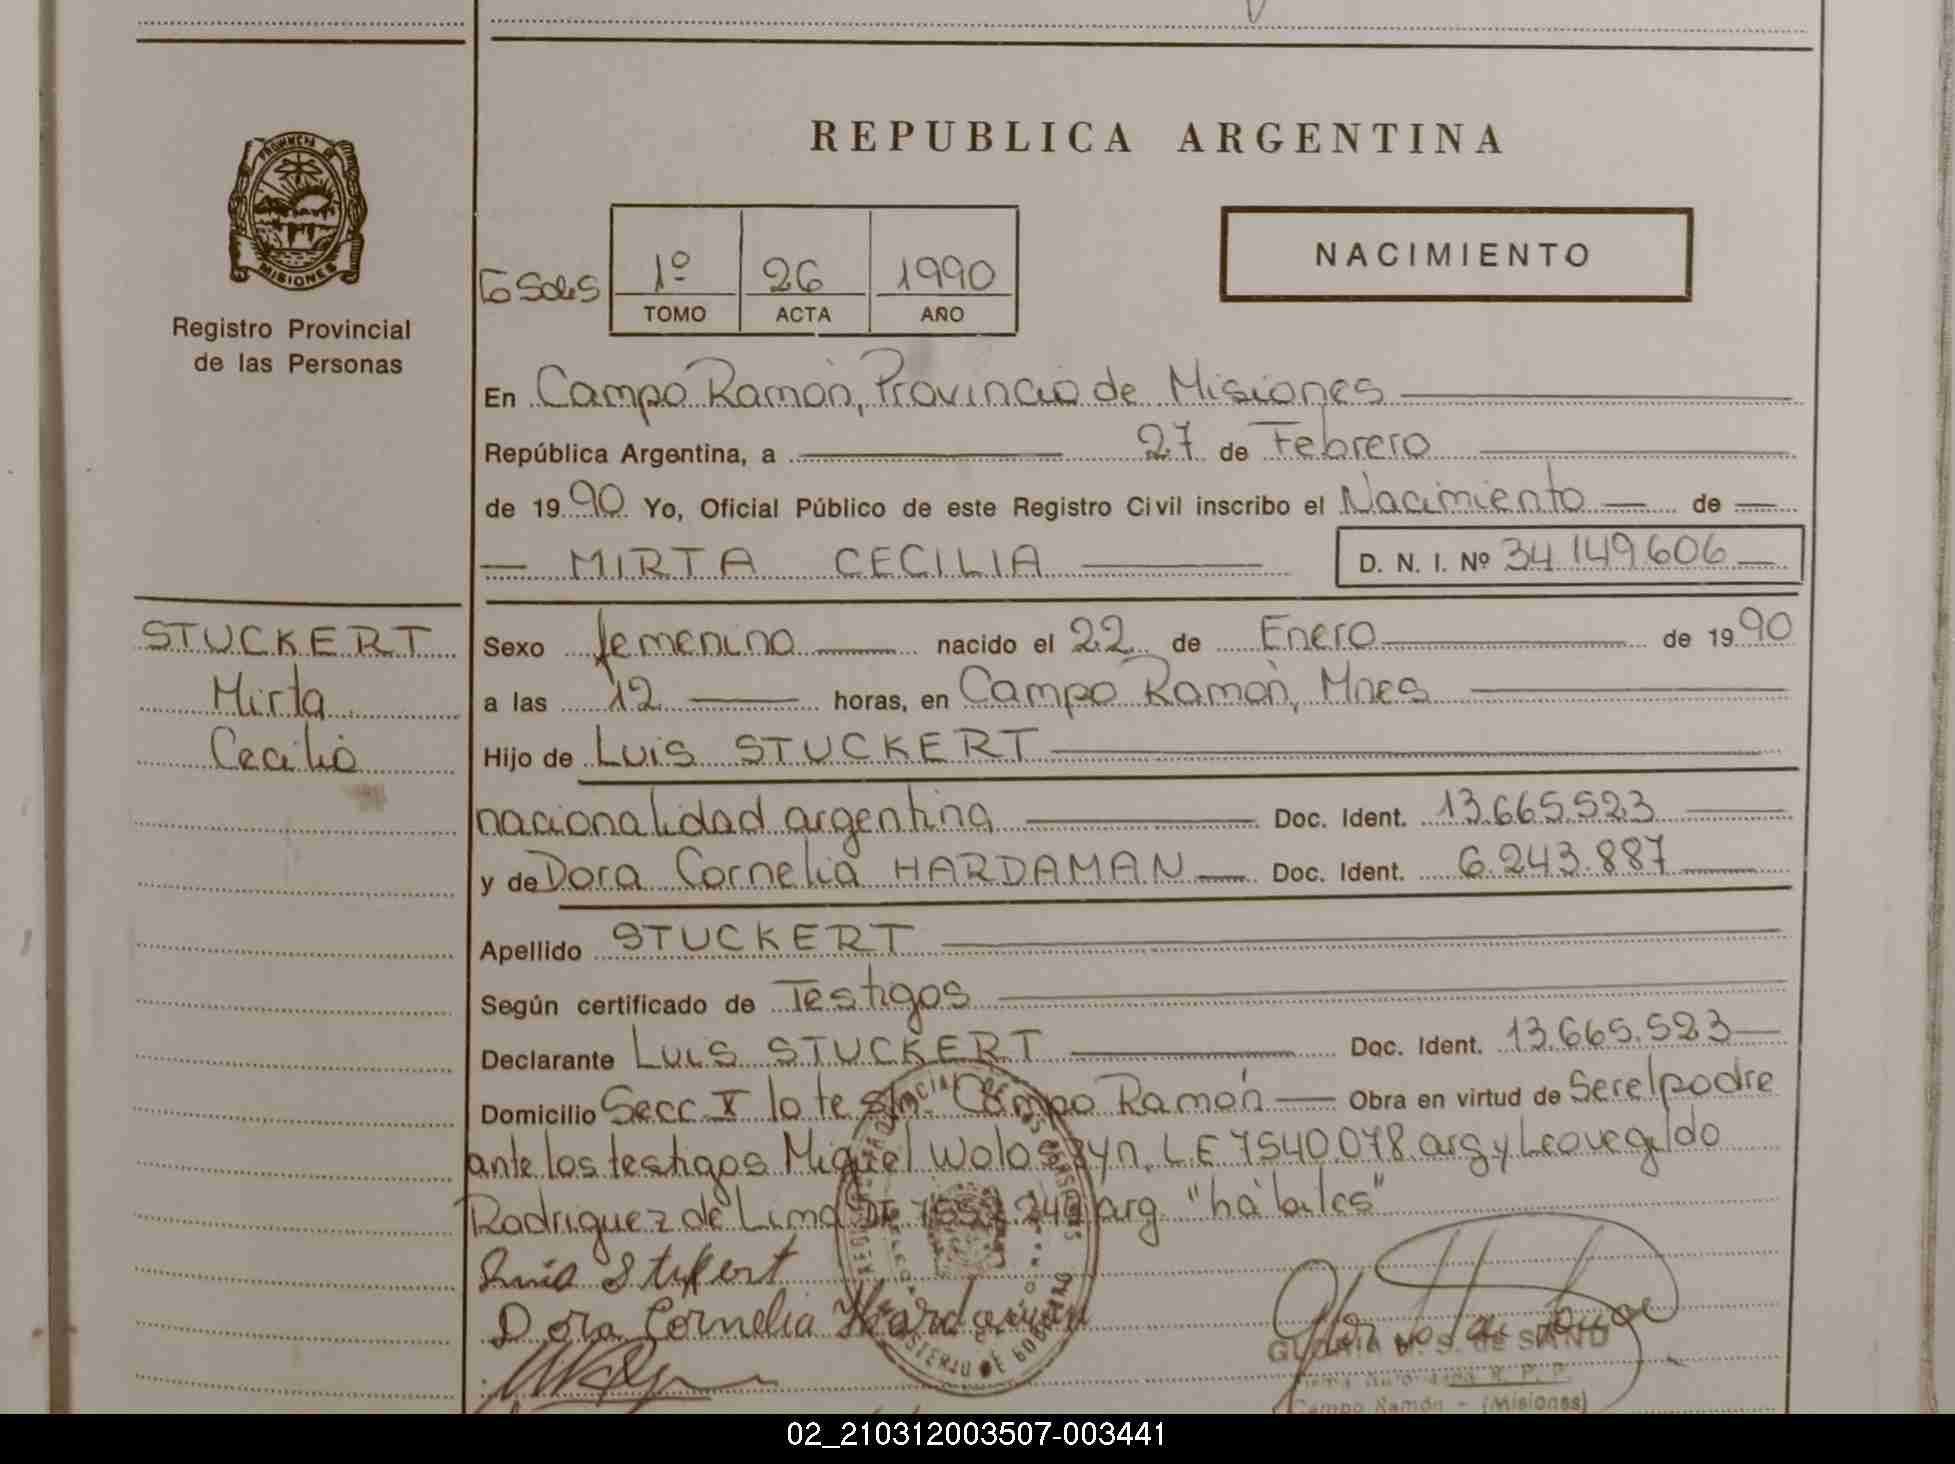 REPUBLICA ARGENTINA
PROVINCIA DE
MISIONES
Registro Provincial
de las Personas
1º 26 1990
TOMO ACTA AÑO
NACIMIENTO
En Campo Ramón, Provincia de Misiones
República Argentina, a 27 de Febrero
de 1990 Yo, Oficial Público de este Registro Civil inscribo el Nacimiento de
MIRTA CECILIA D. N. I. Nº 34.149.606
STUCKERT
Mirta
Cecilia
Sexo femenino nacido el 22 de Enero de 1990
a las 12 horas, en Campo Ramón, Mnes
Hijo de Luis STUCKERT
nacionalidad argentina Doc. Ident. 13.665.523
y de Dora Cornelia HARDAMAN Doc. Ident. 6.243.887
Apellido STUCKERT
Según certificado de Testigos
Declarante Luis STUCKERT Doc. Ident. 13.665.523
Domicilio Secc X lote s/n. Campo Ramón Obra en virtud de Ser el padre
ante los testigos Miguel Woloszyn. L.E 7540.078 arg y Leovegildo
Rodriguez de Lima arg. "hábiles"
Luis Stukert
Dora Cornelia Hardaman
GLORIA
Campo Ramón - (Misiones)
02_210312003507-003441